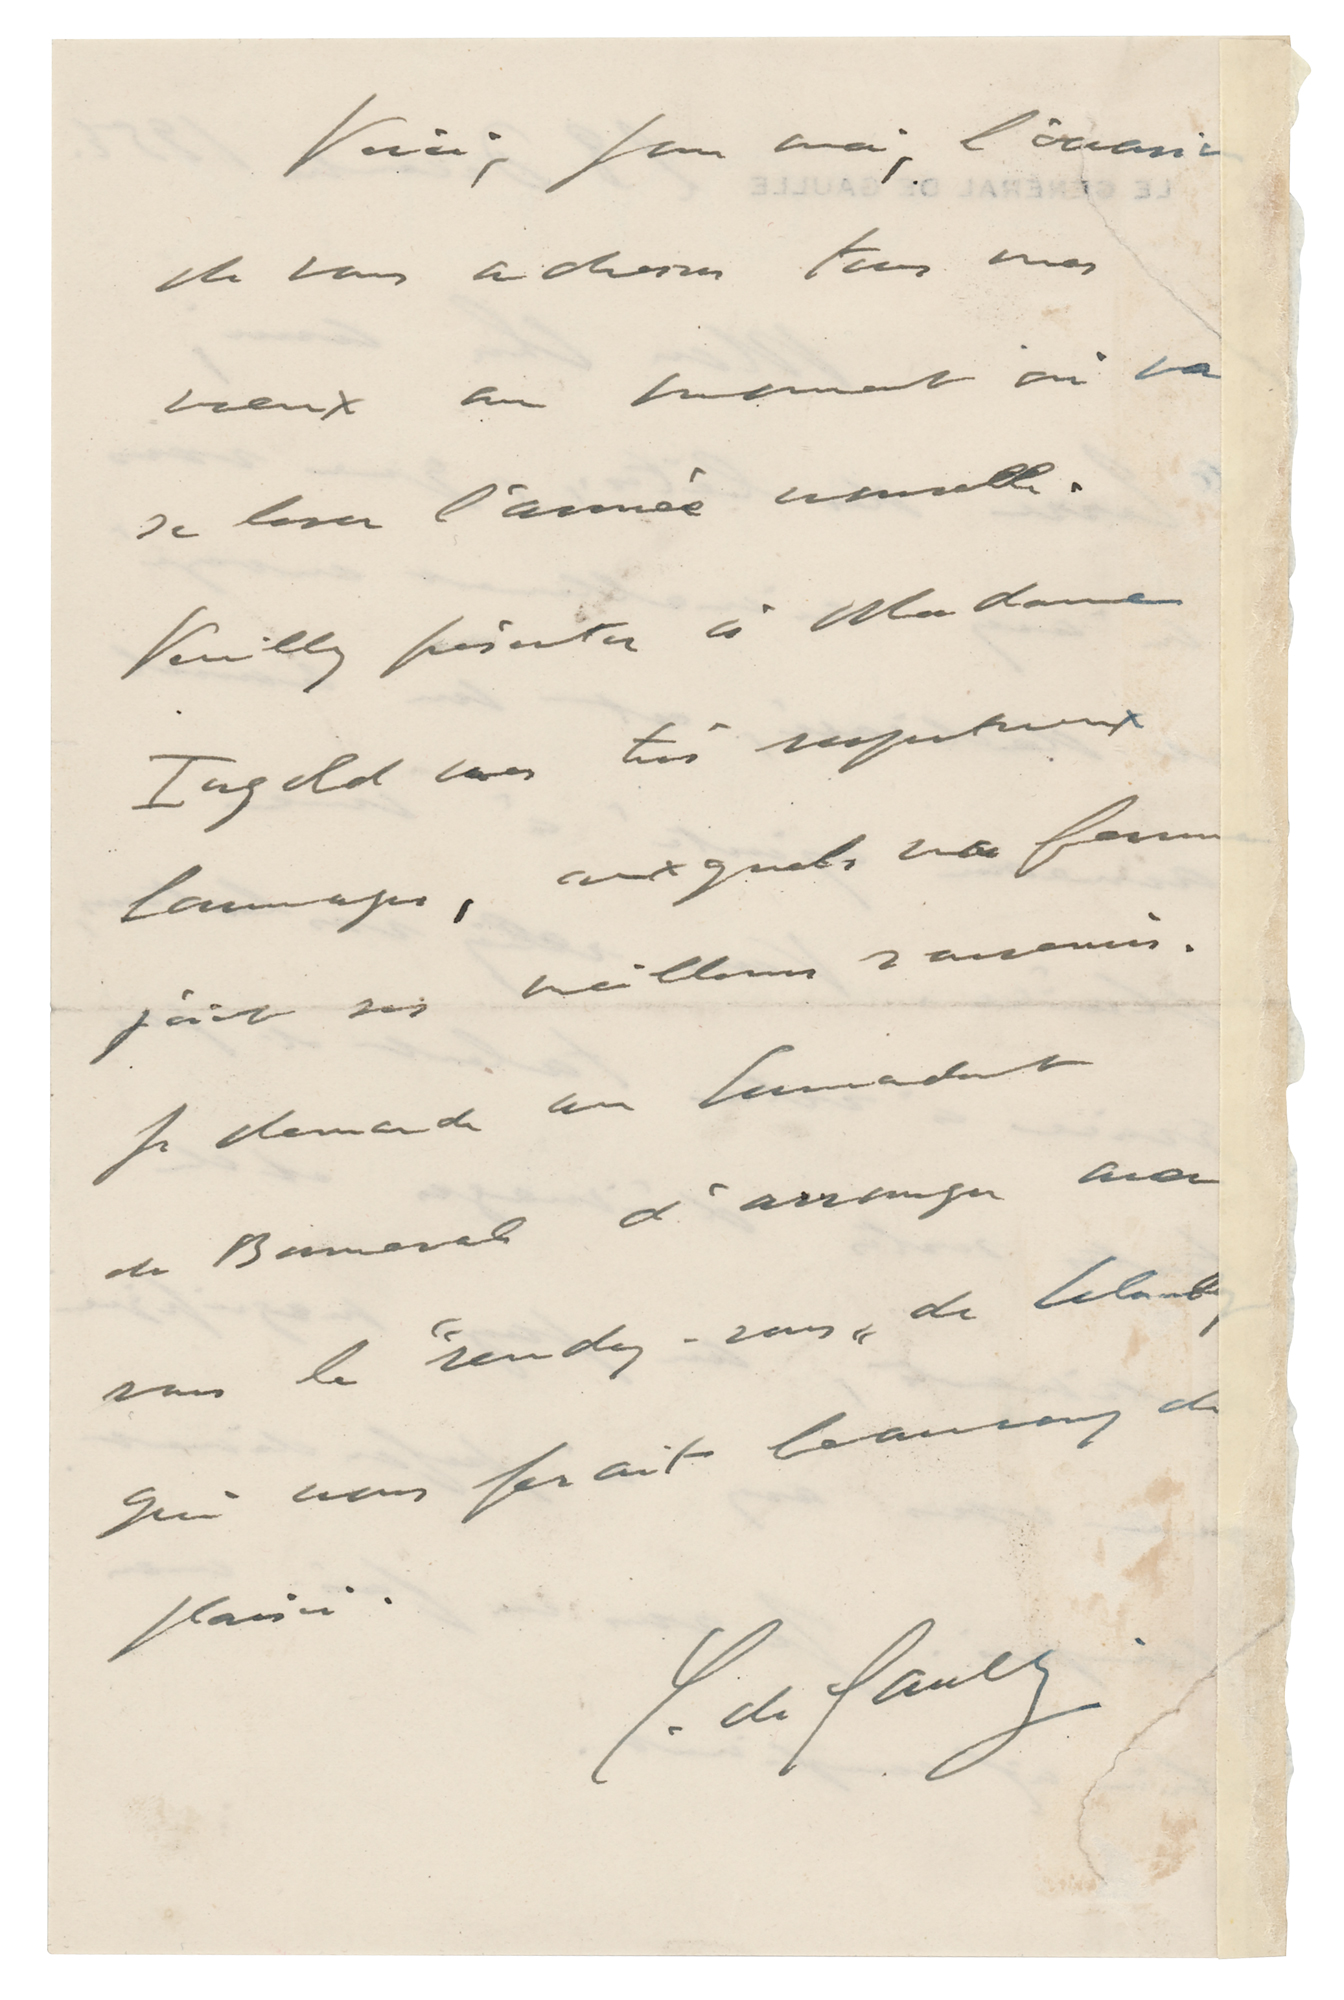 Voici, pour moi, l'occasion
de vous adresser tous mes
vœux au moment où va
se lever l'année nouvelle.
Veuillez présenter à Madame
Ingold mes très respectueux
hommages, auxquels ma femme
joint ses meilleurs souvenirs.
Je demande au Commandant
de Bonneval d'arranger avec
vous le "rendez-vous" de Colombey
qui nous ferait beaucoup de
plaisir.
C. de Gaulle
LE GÉNÉRAL DE GAULLE